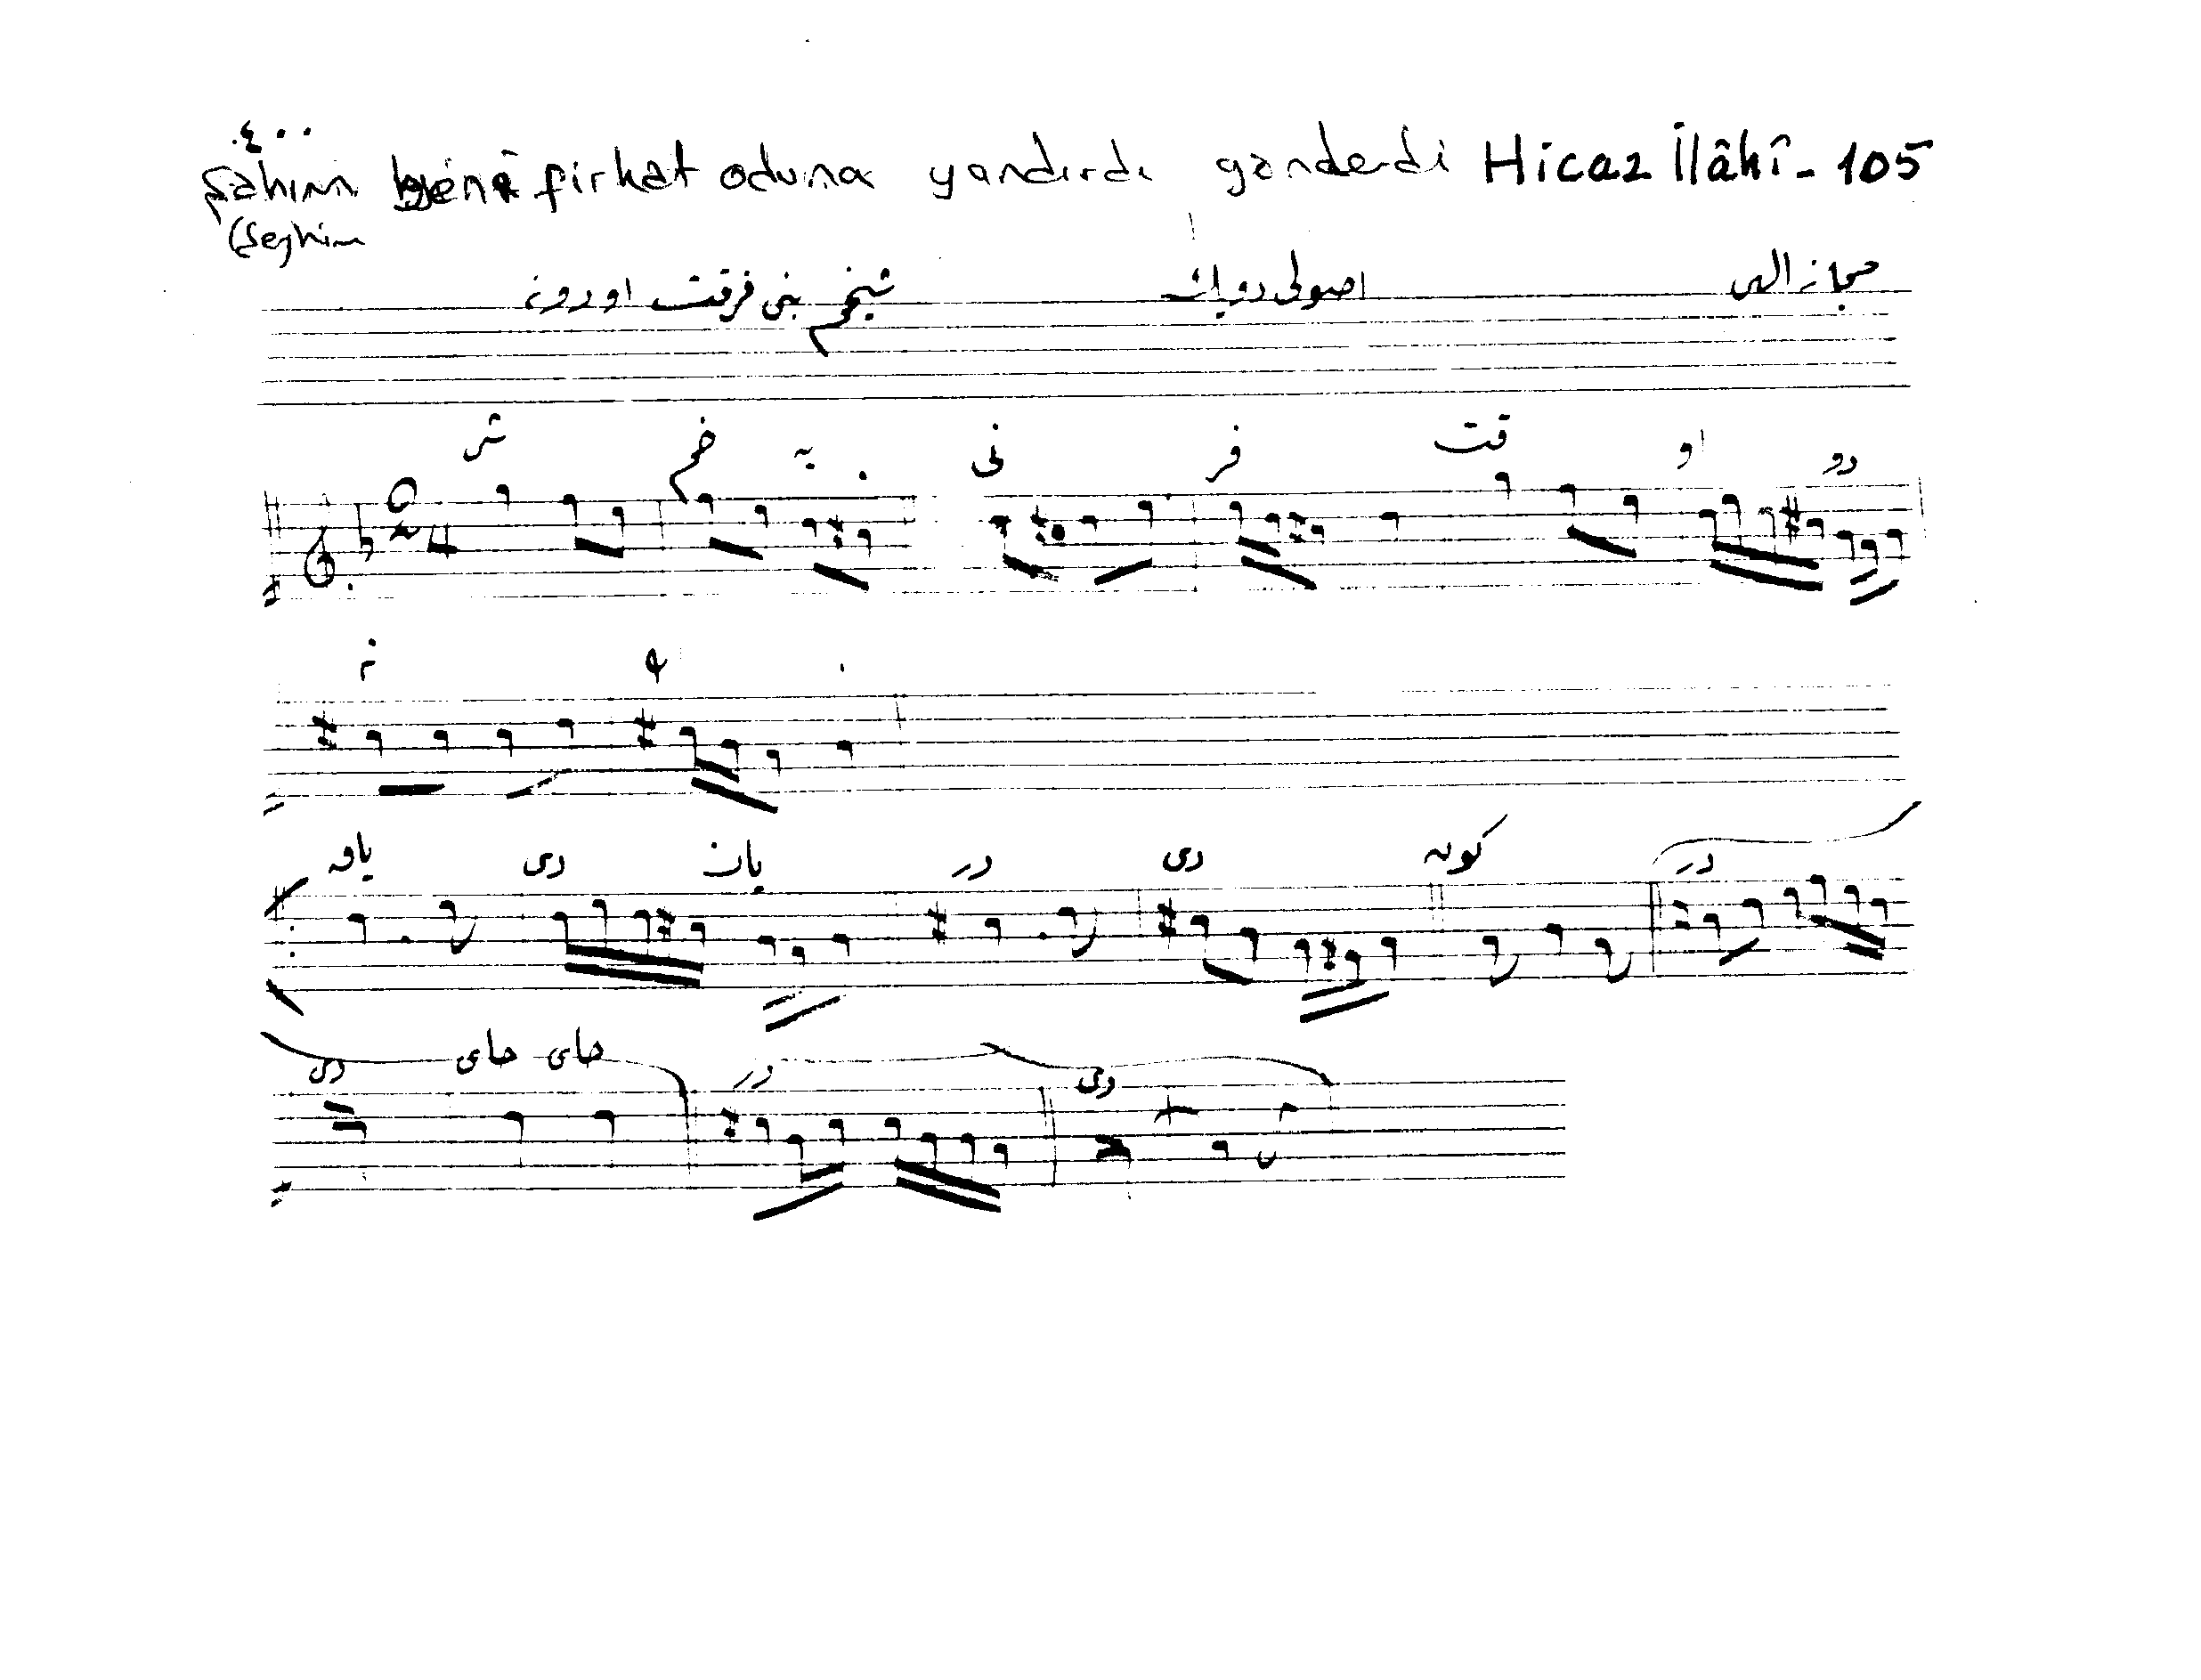 ٤٠٠
Şahım beni firkat oduna yandırdı gönderdi Hicaz İlâhî - 105
(Şeyhim
حجاز الهی اصولی دویك شیخم بنی فرقت اودونه
شی خم بـه نی فر قت او دو
نه
یاق دی یان در دی کون در
دی های های در دی